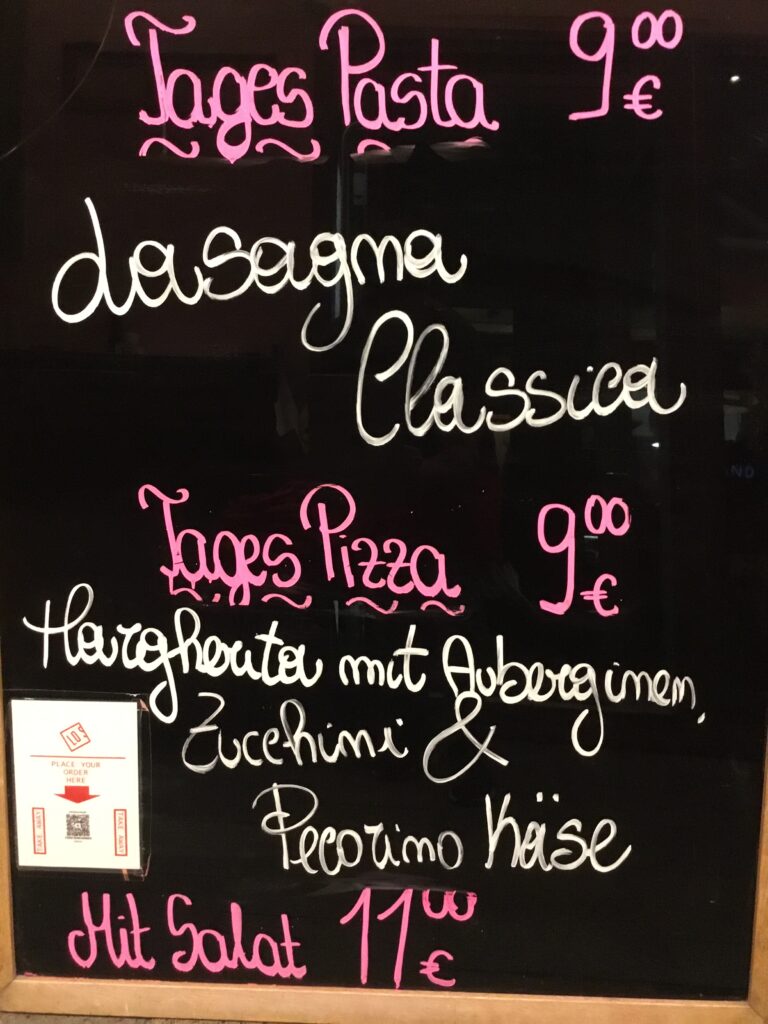 Tages Pasta 9⁰⁰ €
Lasagna
Classica
Tages Pizza 9⁰⁰ €
Margherita mit Auberginen,
Zucchini &
Pecorino Käse
PLACE YOUR
ORDER
HERE
TAKE AWAY
TAKE AWAY
Mit Salat 11⁰⁰ €